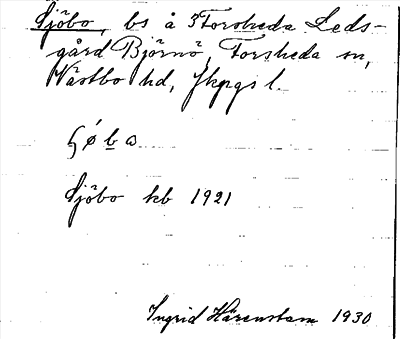 Sjöbo, bs å 3 Forsheda Leds-
gård Björnö, Forsheda sn,
Västbo hd, Jkpgs l.
ʃø̀b̲a
Sjöbo kb 1921
Ingrid Härenstam 1930